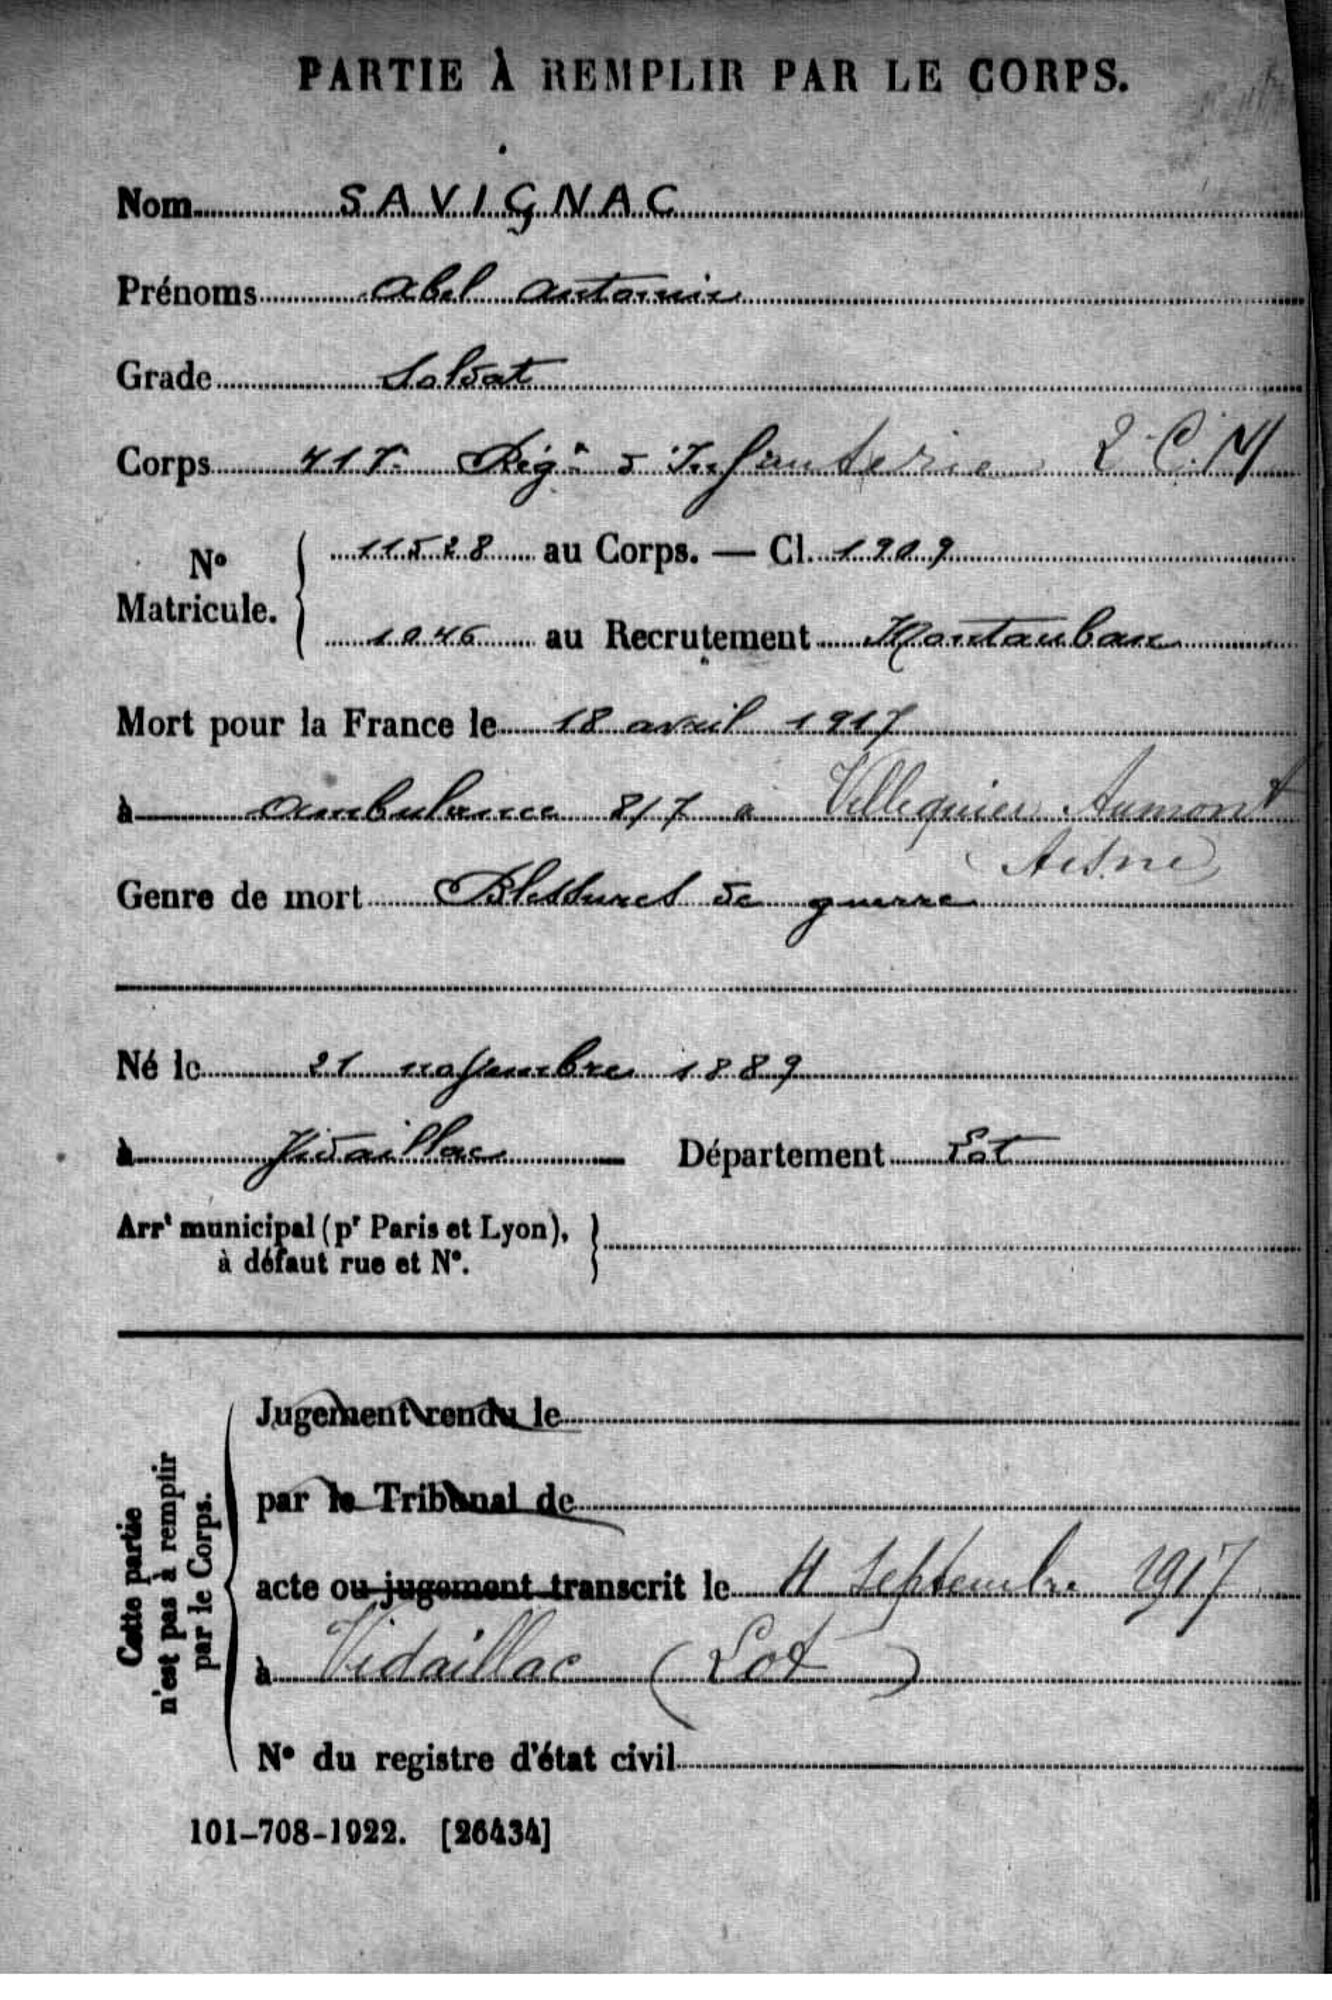 PARTIE À REMPLIR PAR LE CORPS.
Nom SAVIGNAC
Prénoms Abel Antonin
Grade Soldat
Corps 417e Régt d'Infanterie 2 C.M
No Matricule. 11528 au Corps. — Cl. 1909
1046 au Recrutement Montauban
Mort pour la France le 18 avril 1917
à ambulance 8/7 a Villequier Aumont
Aisne
Genre de mort Blessures de guerre
Né le 21 novembre 1889
à Vidaillac Département Lot
Arrt municipal (pr Paris et Lyon),
à défaut rue et No.
Cette partie
n'est pas à remplir
par le Corps.
Jugement rendu le
par le Tribunal de
acte ou jugement transcrit le 4 Septembre 1917
à Vidaillac (Lot)
No du registre d'état civil
101-708-1922. [26434]